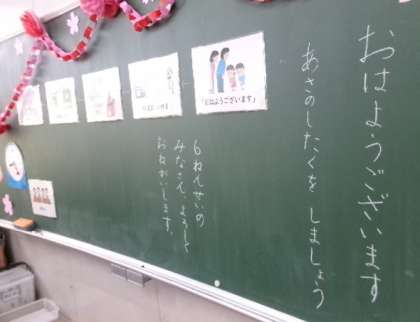 おはようございます
あさのしたくを しましょう
6ねんせいの
みなさん、よろしく
おねがいします。
「おはようございます」